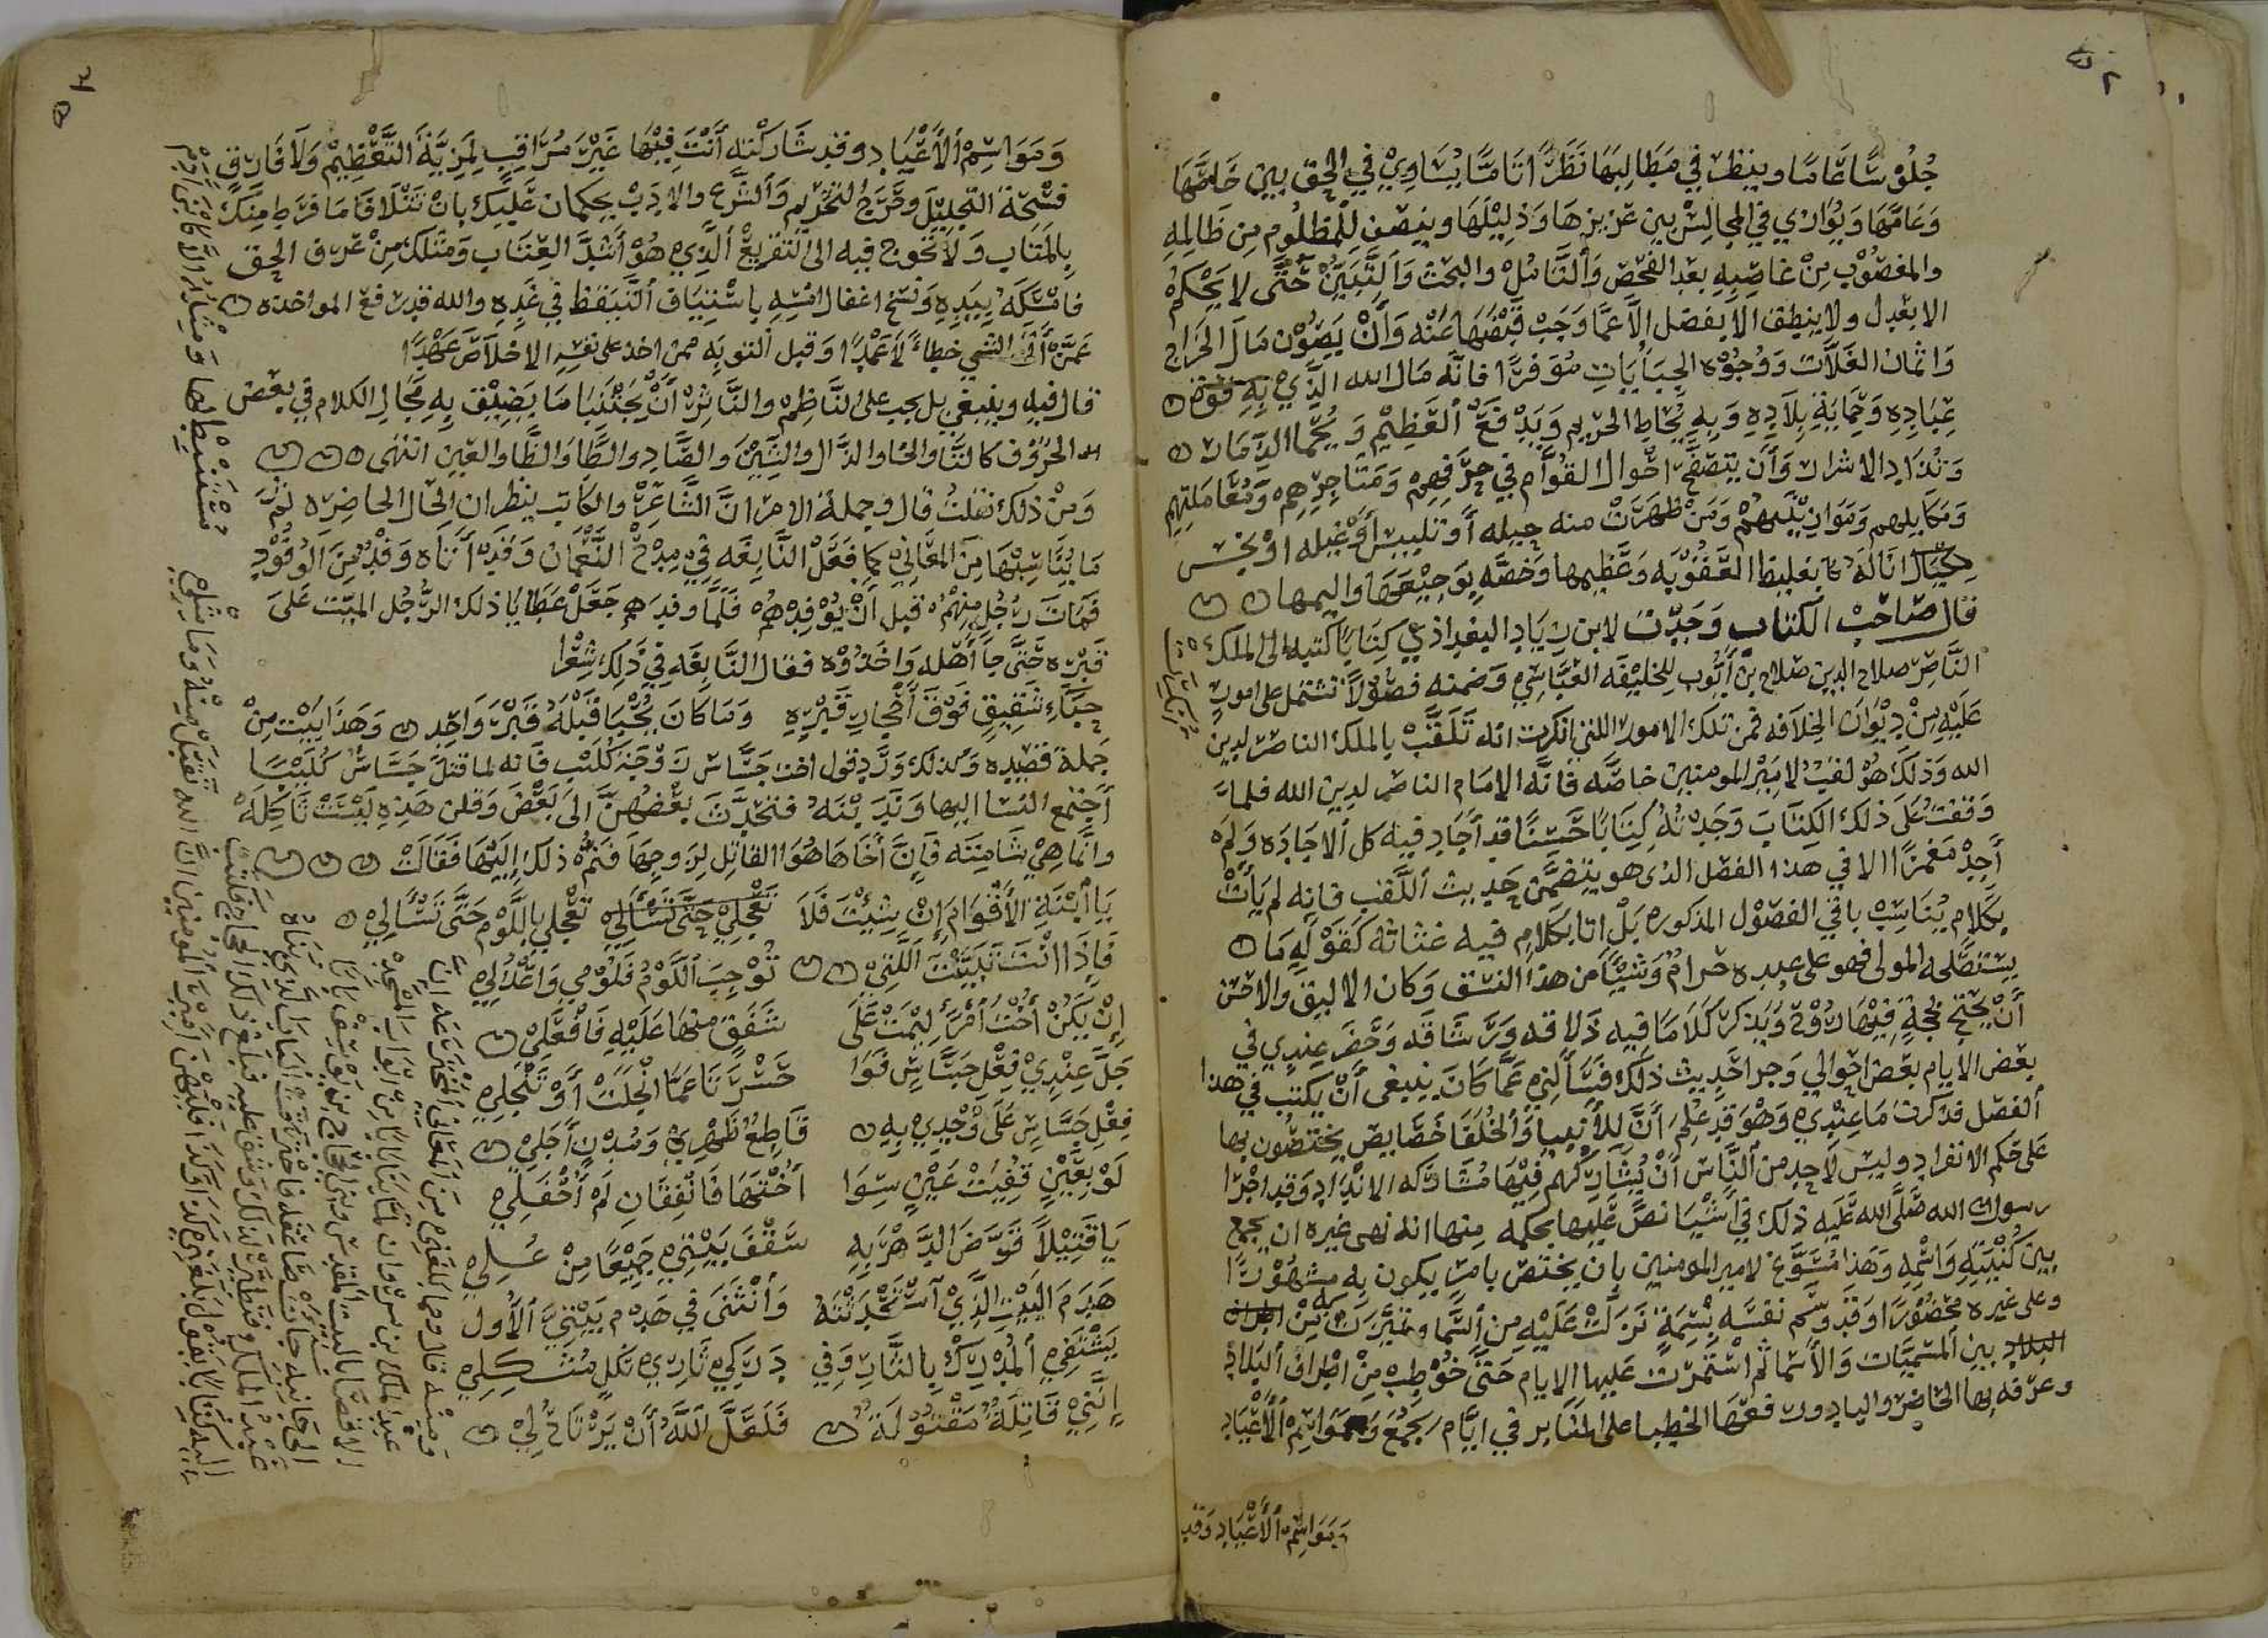 جُلُوْسًا عَامًّا وينظر في مَطَالِبِهَا نَظَرًا تَامًّا يُسَاوِيْ في الحق بين خَاصِّهَا
وَعَامِّهَا وَيُوَازِي في المجالِسْ بين عَزِيزِهَا وَذَلِيْلِهَا وينصف لِلْمظلُوم مِن ظَالِمِهِ
والمغصُوْب مِنْ غَاصِبِهِ بعد الفحْص وَألتَّأمُلْ والبحْث وَألتَّبَيُّنْ حَتَّى لا يَحْكُمُ
الا بعَدل ولا ينطِق الا بفصْل
وَاثمان الغَلَّات وَوُجُوْه الجِبَايَاتِ مُوَفرًا فانَّه مَال الله الَّذِيْ بِهِ
عِبَادِهِ وَحِمَايَةِ بِلَادِهِ وَبِهِ يُحَاط الحريم وَيَدْفَعْ ألعَظِيْم وَيُحْمَا الذِّمَار
الاشرار وَأَن يتصَفَّح احْوال القُوَّام في حِرَفِهِمْ وَمَتَاجِرِهِمْ وَمُعَامَلتِهِم
وَمَكَايِيلهم وَمَوَازِيْنِهِمْ وَمَنْ ظهَرَتْ منه حِيله أَو تَلبِيس أَوْ غِيله اوْ بخس
مِكْيَال انَالَهُ بغلِيظ العُقُوْبه وَعَظِيمها وَخصَّه بِوَجِيْعِهَا وَاليمها
قَال صَاحَبْ الكتاب وَجَدْت لابن زِيَاد البغداذي كِتَابًا كتبه الى الملك
النَّاصِر صَلاح الدين صَلاح بن أيُّوب للخلِيْفَه العَبَّاسِي وَضمنه فصُوْلًا تشتمل على امورٍ
عَلَيْهِ مِنْ دِيْوَان الخلَافه فمن تلك الامور اللتي انكرت انه تَلقَّبْ بالملك الناصِر لدين
الله وَذلكَ هُوْ لقب لامِيْر المومنين خاصَّه فانَّه الامَام الناصِر لدين الله فلما
وَقفتُ عَلَى ذلك الكتَابَ وَجَدْتُهُ كِتَابًا حَسَنًا قد أَجَاد فيه كل ألاجَاده وَلَم
أَجِدْ مَغمَزًا الا في هذا الفصْل الذي هو يتضمَّن حَدِيث اللَّقب فانه لم يَأتْ
بكلام يُنَاسِبْ باقي الفصُوْل المذكوره بَلْ اتا بكلامٍ فيه غثاثه كقوْلِهِ مَا
يستصْلحه المولى فهو على عبده حَرامٌ وَشَيْئًا من هذا النسَق وَكان الاليق والاحْسَن
أَنْ يحتج بحُجةٍ فِيْهَا رُوْحٌ وَيذكر كلامًا فيه ذَلاقه وَرشَاقه وَحَضر عِندي في
بعض الايام بعض اخوالي وَجرا حَدِيث ذلك فسَأَلَنِي عَمَّا كانَ ينبغى أَنْ يكتب في هذا
ألفصْل فذكرت مَا عِنْدِي وَهْوَ قد عُلِمَ أنَّ للأنبِيا وَالخُلَفا خَصَايِص يختصُّون بها
عَلى حُكم الانفرادِ وليس لَأَحدٍ من النَّاس أَنْ يُشَارِكَهُمْ فِيْهَا مُشَارَكه الانْدَاد وَقد اجْرَا
رسول الله صَلَّى الله عَلَيْه ذلك في أَشْيَا نصَّ عَلَيها بحكمه مِنها انه نهى غيره ان يجمع
بين كُنْيَتِهِ وَاسْمِهِ وَهَذا مُسَوِّغ لامِير المومنين بان يختص بامرٍ يكون به مشْهُوْرًا
وعلى غيره مَحْضُوْرًا وَقدْ وَسَّم نفسَه بِسِمَةٍ نزلَتْ عَلَيْهِ مِن ألسَّما وتميَّزت بِهِ مِنْ
البلاد بين المسمَّيَات وَالأسْمَا ثُم اسْتمَرَّت عَلَيها الايام حَتَّى خُوْطِبَ مِنْ اطْرَاف البِلادْ
وعرَّفه بها الحَاضِر والبادْ ورفعَهَا الخطبا على المنَابر في ايَّام الجُمَع وَمَوَاسِم ألأعْيَاد
وَمَوَاسِمْ ألأعْيَاد وَقد
وَمَوَاسِمْ ألأعْيَادِ وقد شَارَكْتَه أَنْتَ فِيْهَا غَيْرَ مُرَاقِبٍ لِمَزِيَّةِ ألتَّعْظِيمْ وَلَا فَارِقٍ
فسْحَةَ التَّحلِيْل وحَرَجُ التحْرِيم وَألشَّرْع والادَبْ يحكمان عَلَيْكَ بِأنْ تتلَافَا مَا فَرَط مِنْكَ
بِالمتَاب وَلا تحوج فيه الى التقرِيعْ ألَّذِي هُوْ أَشَدُّ العِتَاب وَمثلك مِنْ عَرَف الحق
فامْسَكَهُ بِيَدِهِ وَنسَخ اغفال امْسِهِ بِاسْتِينَاف ألتَّيَقظ في غَدِهِ والله قد رَفع المواخذه
عَمَّنْ أَتَى الشي خطاءً لَاَ عَمْدًا وَقبل التوبَه ممن اخذ على نفسِهِ الاخلَاصَ عَهْدًا
قال فيه وينبغي بل يجب على النَّاظِم والنَّاثِر أَنْ يَجْتنبا مَا يَضِيْق بِهِ مَجَال الكلام في بعْض
الحُرُوْف كالثَّا والخا والذَّال والشِّيْن والصَّاد والطَّا والظَّا والغَيْن انتهى
وَمِنْ ذلك نقلتُ قال وجملة الامْر انَّ الشَّاعِرْ والكَاتِب ينظر ان الحَال الحَاضِره ثم
مَا يُنَاسِبُهَا مِنَ المعَانيْ كما فَعَلْ النَّابِغَه فِيْ مِدْحْ النُّعْمَان وَقدْ أَتاه وَفْدٌ مِنَ الوُفُوْد
فَمَات رَجُل مِنهمْ قبل أَنْ يُوْفِدْهُمْ فَلَمَّا وفدَهم جَعَلْ عَطايا ذلك الرَّجُل الميِّت عَلَى
قَبْرِه حَتَّى جَا أَهْله وَاخذُوْه فقال النَّابِغَه في ذَلِك شِعْرا
حِبَاءِ شَقِيقٍ فَوْقَ أَحْجَارِ قَبْرِهِ وَمَا كَانَ يُحْبَا قَبْلَهُ قَبْرُ وَاحِدِ وَهَذا بَيْت مِنْ
جُملة قصِيده وَكذلك وَرَدْ قول اخت جَسَّاس زَوْجَة كُلَيْب فَانه لما قتل جَسَّاسْ كُلَيْبًا
أجتمع النسَا اليها وَنَدَيْنَهُ فتحدَّث بعْضُهنَّ الَى بَعْض وَقلن هَذِهِ لَيْسَتْ ثَاكِلَه
وانَّمَا هِيْ شامِتَه فَاِنَّ أخَاهَا هُوَ القاتِل لِزَوجِهَا فَنُمَّ ذلك إِلَيْهَا فَقَالَتْ
يَا أبْنَةِ الأَقْوَام إِنْ شِيْتَ فَلَا تَعْجَلِي بِاللَّوْم حَتَّى تَسْأَلِيْ
فَإِذَا انْتَ تَبَيَّنْتَ اللَّتِيْ تُوْجِبَ اللَّوْمَ فَلُوْمِي وَاعْذُلِي
إِنْ يَكُنْ أُخْتُ أمْرَأٍ لِيْمَتْ عَلَى شَفَقٍ مِنهَا عَلَيْهِ فَافْعَلِيْ
جَلَّ عِنْدِيْ فِعْلِ جَسَّاسٍ فَوَا حَسْرَتَا عَمَّا انْجَلَتْ أَوْ تَنْجَلِي
فِعْلِ جَسَّاسٍ عَلَى وَجْدِيْ بِهِ قَاطِعُ ظَهْرِيْ وَمُدْنٍ أَجَلِيْ
لَوْ بِعَيْنٍ فُقِيَتْ عَيْنٍ سِوَا أُخْتِهَا فَانفَقَانِ لَمْ أَحْفَلِي
يَا قَتِيْلًا قَوَّضَ الدَّهْرَ بِهِ سَقْفَ بَيْتِيْ جَمِيْعًا مِنْ عَلِي
هَدَمَ البَيْتِ الَّذِيْ أسْتَحْدَثْتَهُ وَأنْثَنَى فِي هَدْم بَيْتِيَ ألأَوَّل
يَشْتَفِيْ المُدْرِكْ بِالثَّارِ وَفِي دَرَكِي ثَارِيْ ثكلِ مُثْكِلِي
إِنَّنِيْ قَاتِلَةٌ مَقْتُوْلَةٌ فَلَعَلَّ اللَّهُ أَنْ يَرْتَاحُ لِيْ
وَمِنْهُ قال ومما بلغني من المعَانِي المخْتَرَعَه انَّ
عَبْد الملك بن مَرْوان بنى بَابًا مِنْ أبْوَابِ المسْجِدْ
الاقصَا بالبيت المقدَّس وبنى الحجَّاج بن يوسُفْ بَابًا
الى جَانِبِه فجَات صَاعِقه فاحْرقت البَابْ الذي بَنَاه
عَبْد الملك وَتطيَّر لذلك وَشق عليه فبلغ ذلك الحجَّاج فكتب
اليه كتابًا يقول بلغني كذا وكذا فليهن أمِيْرَ المومنين انَّ الله تقبل مِنْهُ وَمَا مثلي